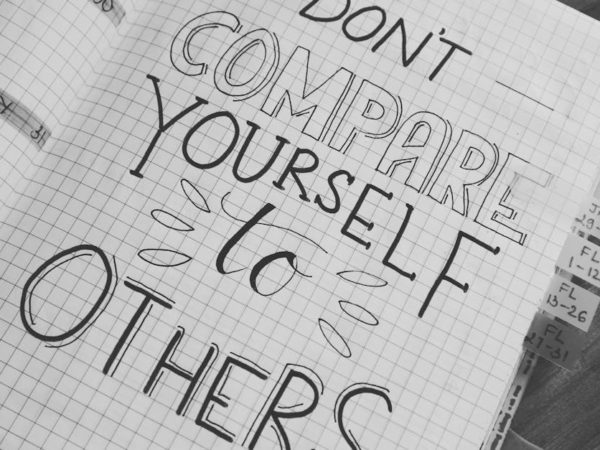 DON'T
COMPARE
YOURSELF
to
OTHERS
FL
1-12
FL
13-26
FL
27-31